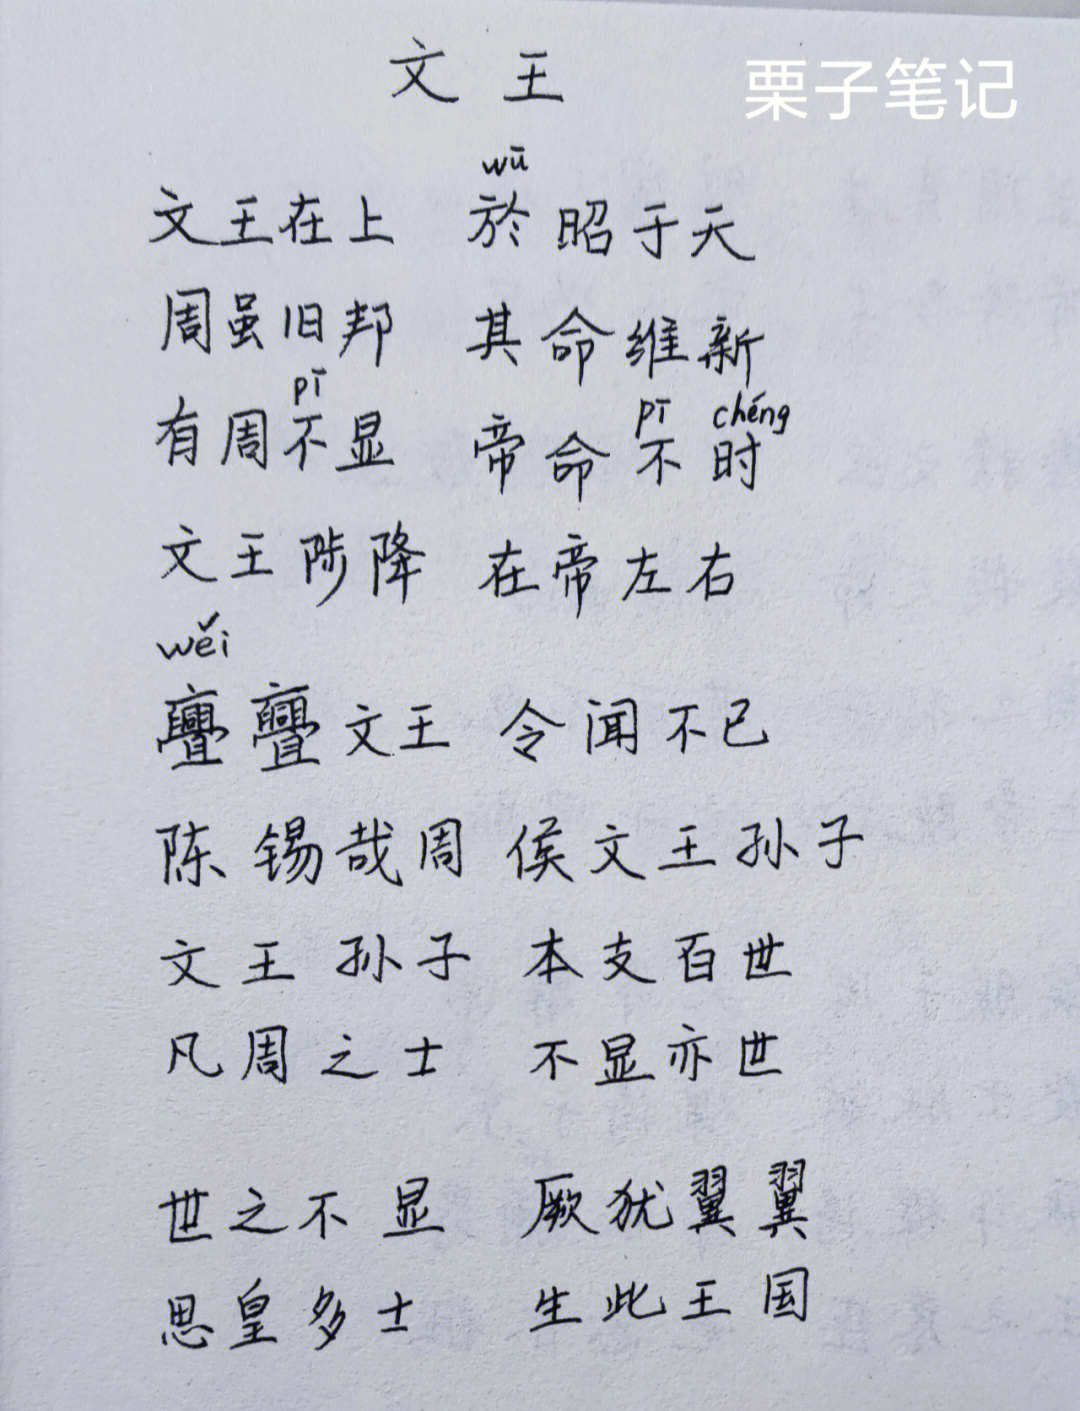 文王
栗子笔记
wū
文王在上 於昭于天
周虽旧邦 其命维新
pī pī chéng
有周不显 帝命不时
文王陟降 在帝左右
wěi
亹亹文王 令闻不已
陈锡哉周 侯文王孙子
文王孙子 本支百世
凡周之士 不显亦世
世之不显 厥犹翼翼
思皇多士 生此王国